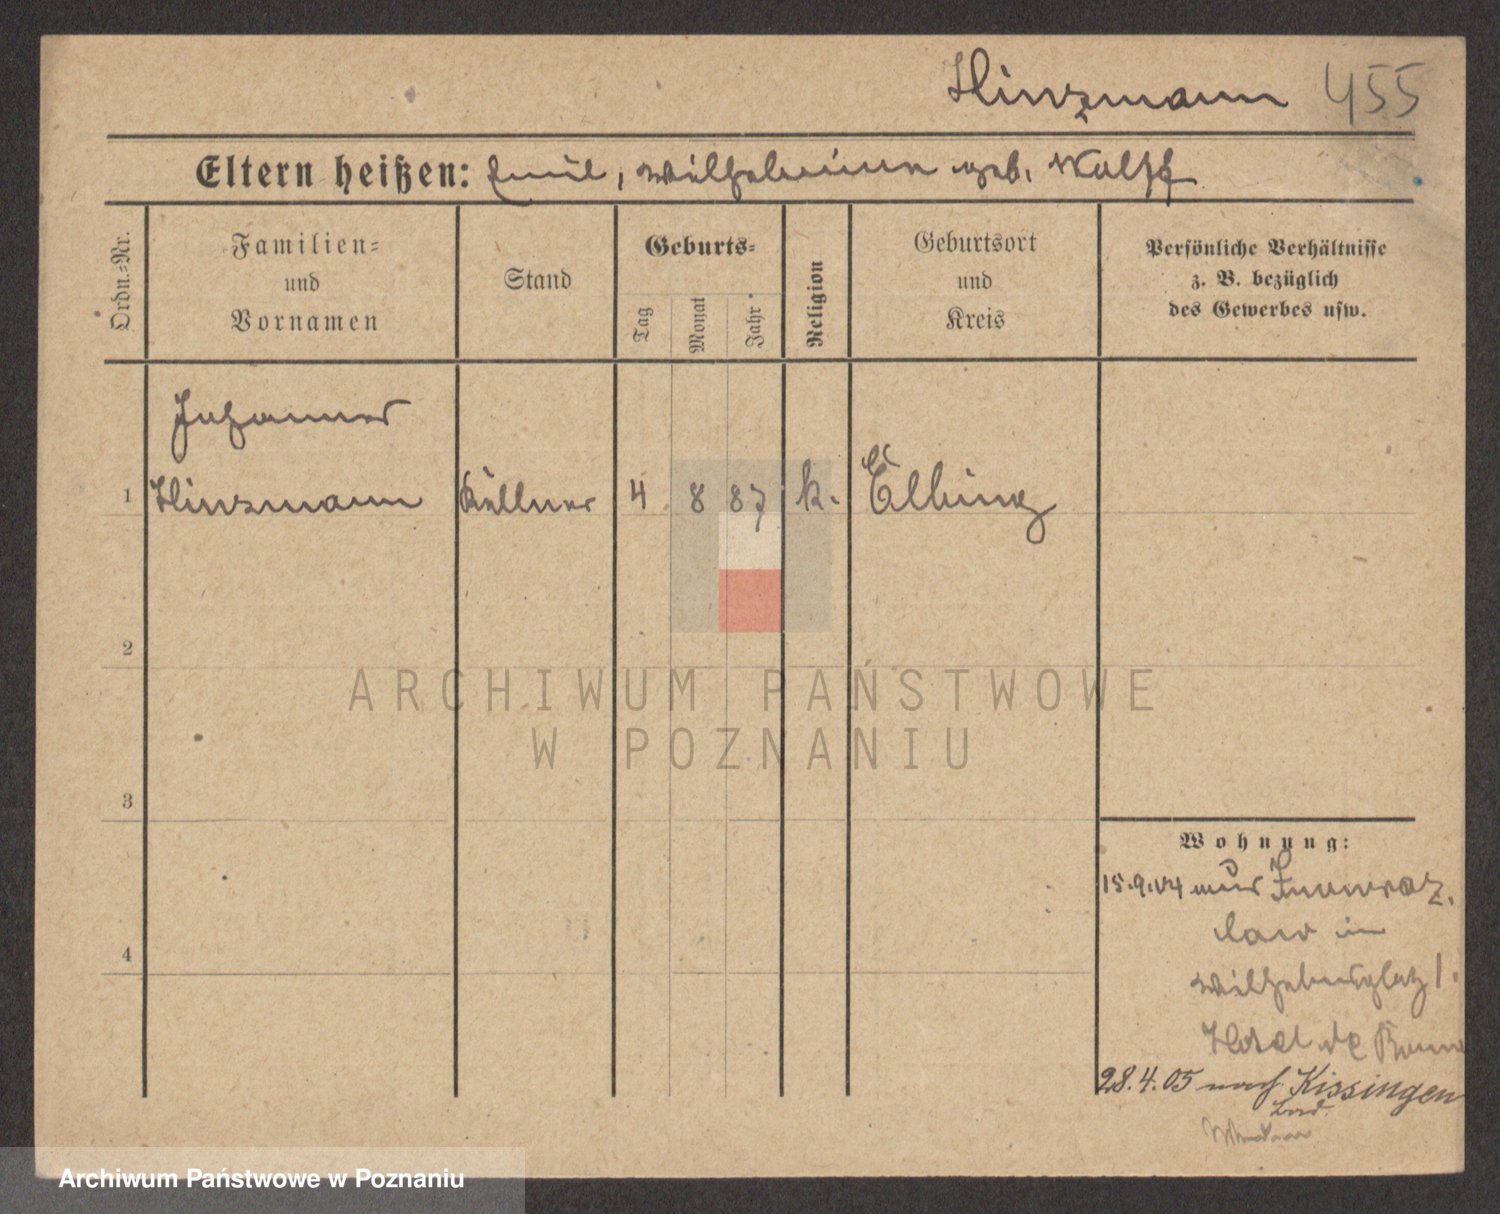 Hinzmann 455
Eltern heißen: Emil, Wilhelmine geb. Wolff
Ordn.-Nr.
Familien-
und
Vornamen
Stand
Geburts-
Tag
Monat
Jahr
Religion
Geburtsort
und
Kreis
Persönliche Verhältnisse
z. B. bezüglich
des Gewerbes usw.
Johannes
1 Hinzmann Kellner 4 8 87 k. Elbing
2
3
4
Wohnung:
15.9.04 aus Inowraz.
law in
Wilhelmsplatz 1.
Hotel de Rome
28.4.05 nach Kissingen
Bad
ARCHIWUM PAŃSTWOWE
W POZNANIU
Archiwum Państwowe w Poznaniu